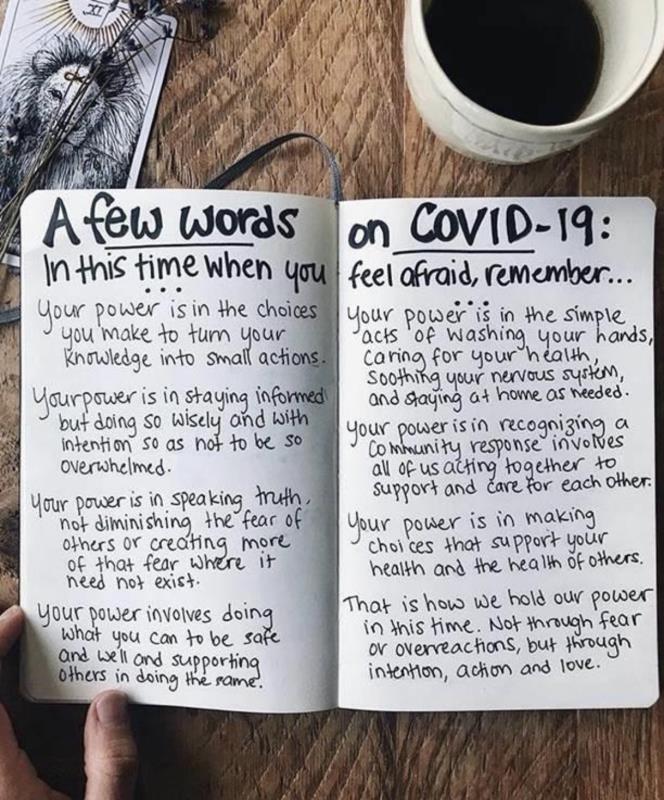 VI
A few words
In this time when you
...
Your power is in the choices
you make to turn your
knowledge into small actions.
Your power is in staying informed
but doing so wisely and with
intention so as not to be so
overwhelmed.
Your power is in speaking truth,
not diminishing the fear of
others or creating more
of that fear where it
need not exist.
Your power involves doing
what you can to be safe
and well and supporting
others in doing the same.
on COVID-19:
feel afraid, remember...
...
Your power is in the simple
acts of washing your hands,
caring for your health,
soothing your nervous system,
and staying at home as needed.
Your power is in recognizing a
community response involves
all of us acting together to
support and care for each other.
Your power is in making
choices that support your
health and the health of others.
That is how we hold our power
in this time. Not through fear
or overreactions, but through
intention, action and love.